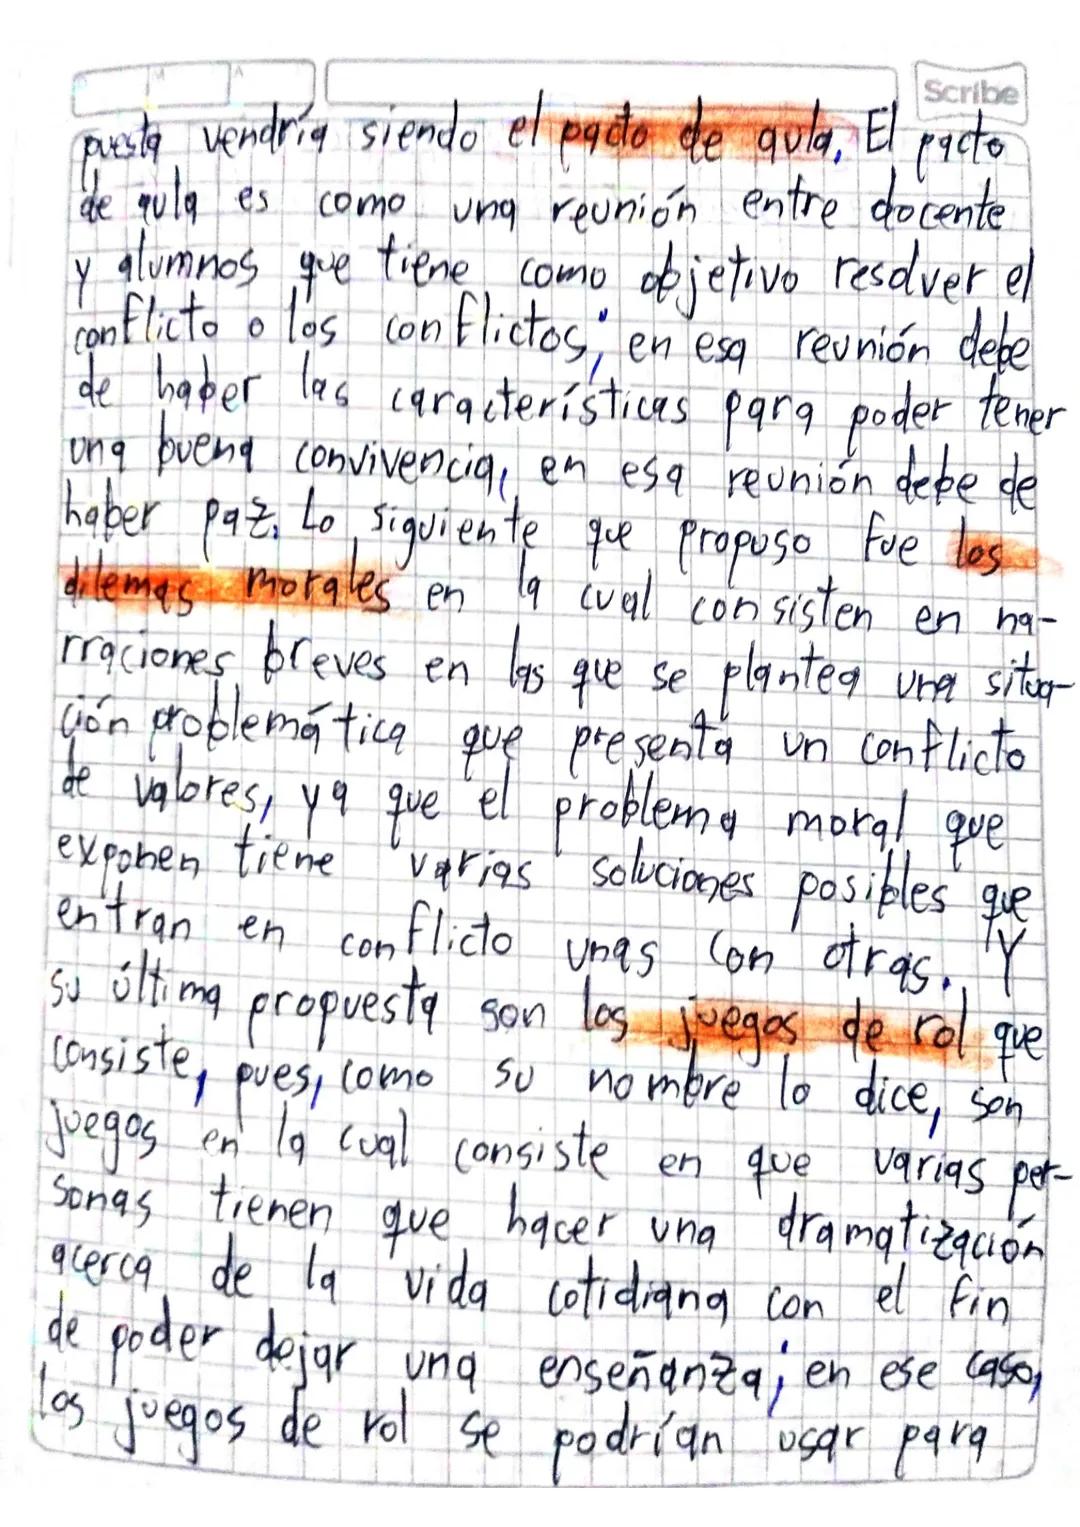 M A
Scribe
puesta vendría siendo el pacto de aula. El pacto
de aula es como una reunión entre docente
y alumnos que tiene como objetivo resolver el
conflicto o los conflictos; en esa reunión debe
de haber las características para poder tener
una buena convivencia, en esa reunión debe de
haber paz. Lo siguiente que propuso fue los
dilemas morales en la cual consisten en na-
rraciones breves en las que se plantea una situa-
ción problemática que presenta un conflicto
de valores, ya que el problema moral que
exponen tiene varias soluciones posibles que
entran en conflicto unas con otras. Y
su última propuesta son los juegos de rol que
consiste, pues, como su nombre lo dice, son
juegos en la cual consiste en que varias per-
sonas tienen que hacer una dramatización
acerca de la vida cotidiana con el fin
de poder dejar una enseñanza; en ese caso,
los juegos de rol se podrían usar para